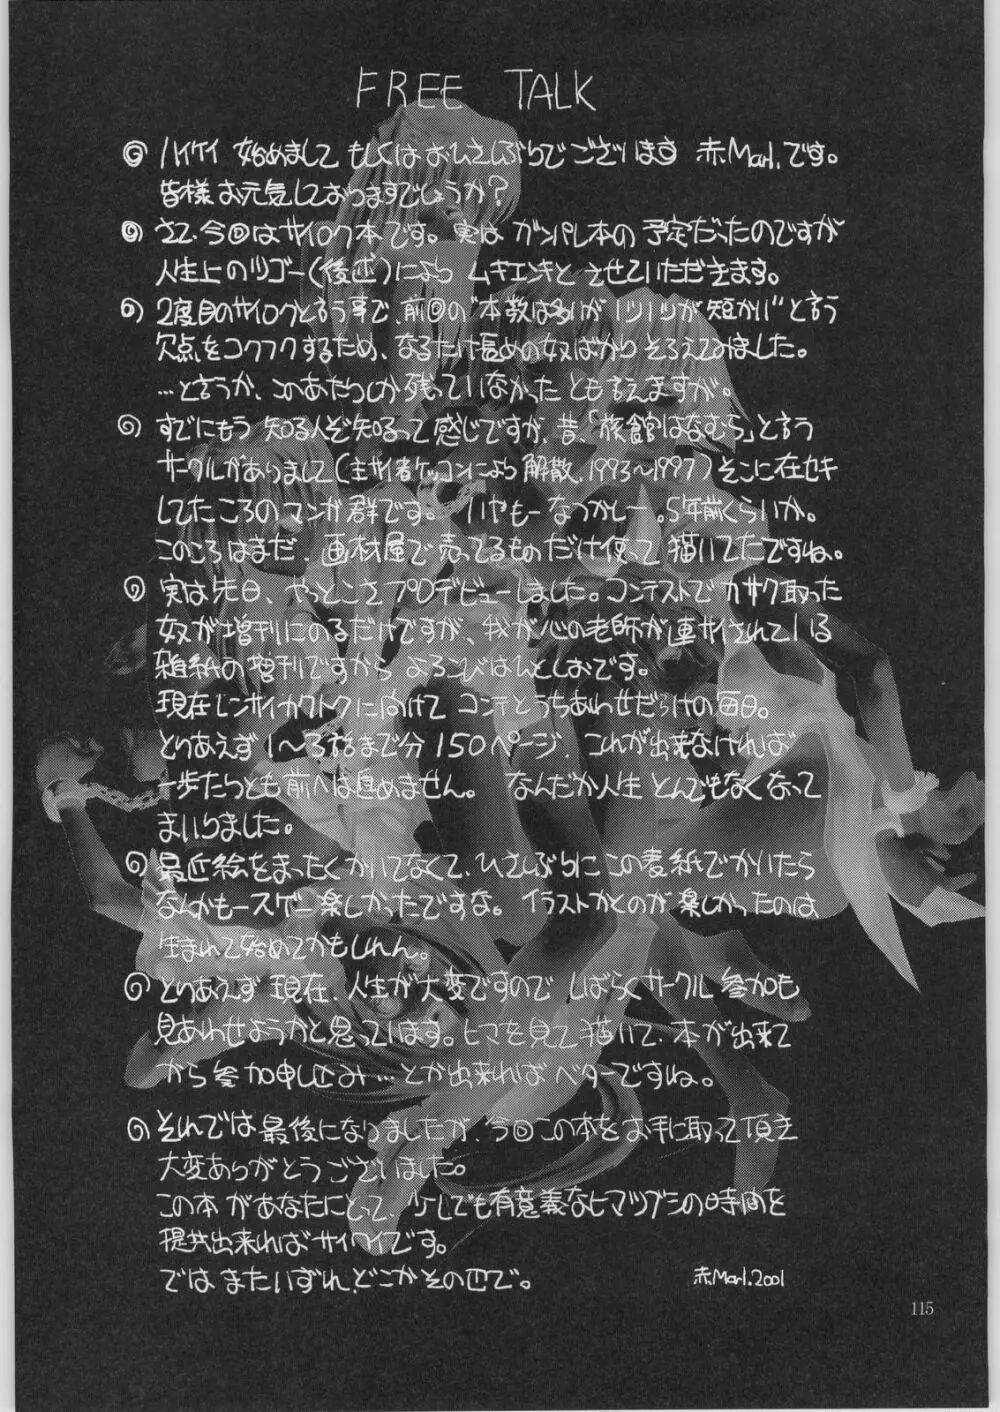 FREE TALK
ハイケイ 始めまして もしくはおひさしぶりでございます 赤Marl.です。
皆様お元気しておりますでしょうか?
さて、今回はサイロク本です。実は ガンパレ本の 予定だったのですが
人生上のツゴー(後述)により ムキエンキと させていただきます。
2度目のサイロクと言う事で、前回の"本数は多いが 1ツ1ツが 短かい"と言う
欠点をコクフクするため、なるたけ長めの奴ばかり そろえてみました。
…と言うか、このあたりしか 残っていなかった とも言えますが。
すでにもう 知る人ぞ知るって 感じですが、昔、「旅館はなむら」と言う
サークルがありまして(主サイ者ケッコンにより 解散、1993〜1997)そこに在セキ
してたころのマンガ群です。 いやもー なつかしー。5年前くらいか。
このころはまだ、画材屋で売ってるものだけ使って 描いてたですね。
実は先日、やっとこさプロデビューしました。コンテストで カサク取った
奴が増刊にのるだけですが、我が心の老師が連サイされている
雑紙の増刊ですから よろこびはひとしおです。
現在レンサイカクトクに向けて コンテとうちあわせだらけの毎日。
とりあえず1〜3話まで分150ページ、これが出来なければ
一歩たりとも前へは進めません。 なんだか人生 とんでもなくなって
まいりました。
最近絵をまったくかいてなくて、ひさしぶりにこの表紙でかいたら
なんかもースゲー楽しかったですな。イラストかくのが楽しかったのは
生まれて始めてかもしれん。
とりあえず現在、人生が大変ですので しばらくサークル参加も
見あわせようかと思っています。ヒマを見て描いて、本が出来て
から参加申し込み…とか出来ればベターですね。
それでは最後になりましたが、今回この本をお手に取って頂き
大変ありがとうございました。
この本があなたにとって、少しでも有意義なヒマツブシの時間を
提共出来ればサイワイです。
では またいずれ、どこかその辺で。
赤Marl.2001
115